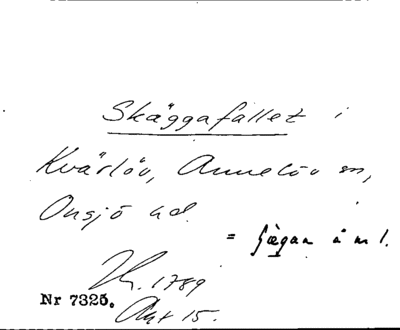 Skäggafallet i
Kvärlöv, Annelöv sn,
Onsjö hd.
= å m l.
1789
Nr 7325.
Akt 15.